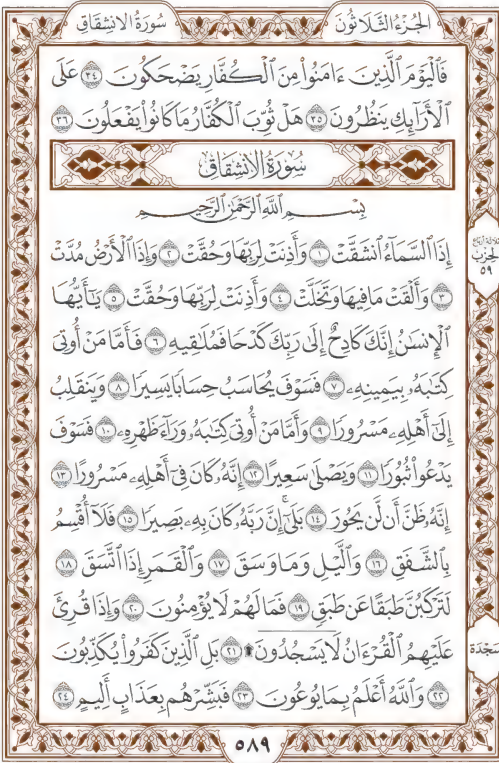 سُورَةُ الانشِقَاقِ الجُزْءُ الثَّلَاثُونَ
فَٱلْيَوْمَ ٱلَّذِينَ ءَامَنُوا۟ مِنَ ٱلْكُفَّارِ يَضْحَكُونَ ٣٤ عَلَى
ٱلْأَرَآئِكِ يَنظُرُونَ ٣٥ هَلْ ثُوِّبَ ٱلْكُفَّارُ مَا كَانُوا۟ يَفْعَلُونَ ٣٦
سُورَةُ الانشِقَاقِ
بِسْمِ ٱللَّهِ ٱلرَّحْمَٰنِ ٱلرَّحِيمِ
إِذَا ٱلسَّمَآءُ ٱنشَقَّتْ ١ وَأَذِنَتْ لِرَبِّهَا وَحُقَّتْ ٢ وَإِذَا ٱلْأَرْضُ مُدَّتْ
٣ وَأَلْقَتْ مَا فِيهَا وَتَخَلَّتْ ٤ وَأَذِنَتْ لِرَبِّهَا وَحُقَّتْ ٥ يَٰٓأَيُّهَا
ٱلْإِنسَٰنُ إِنَّكَ كَادِحٌ إِلَىٰ رَبِّكَ كَدْحًا فَمُلَٰقِيهِ ٦ فَأَمَّا مَنْ أُوتِىَ
كِتَٰبَهُۥ بِيَمِينِهِۦ ٧ فَسَوْفَ يُحَاسَبُ حِسَابًا يَسِيرًا ٨ وَيَنقَلِبُ
إِلَىٰٓ أَهْلِهِۦ مَسْرُورًا ٩ وَأَمَّا مَنْ أُوتِىَ كِتَٰبَهُۥ وَرَآءَ ظَهْرِهِۦ ١٠ فَسَوْفَ
يَدْعُوا۟ ثُبُورًا ١١ وَيَصْلَىٰ سَعِيرًا ١٢ إِنَّهُۥ كَانَ فِىٓ أَهْلِهِۦ مَسْرُورًا ١٣
إِنَّهُۥ ظَنَّ أَن لَّن يَحُورَ ١٤ بَلَىٰٓۚ إِنَّ رَبَّهُۥ كَانَ بِهِۦ بَصِيرًا ١٥ فَلَآ أُقْسِمُ
بِٱلشَّفَقِ ١٦ وَٱلَّيْلِ وَمَا وَسَقَ ١٧ وَٱلْقَمَرِ إِذَا ٱتَّسَقَ ١٨
لَتَرْكَبُنَّ طَبَقًا عَن طَبَقٍ ١٩ فَمَا لَهُمْ لَا يُؤْمِنُونَ ٢٠ وَإِذَا قُرِئَ
عَلَيْهِمُ ٱلْقُرْءَانُ لَا يَسْجُدُونَ ۩ ٢١ بَلِ ٱلَّذِينَ كَفَرُوا۟ يُكَذِّبُونَ
٢٢ وَٱللَّهُ أَعْلَمُ بِمَا يُوعُونَ ٢٣ فَبَشِّرْهُم بِعَذَابٍ أَلِيمٍ ٢٤
الحِزْبُ
٥٩
سَجْدَة
٥٨٩